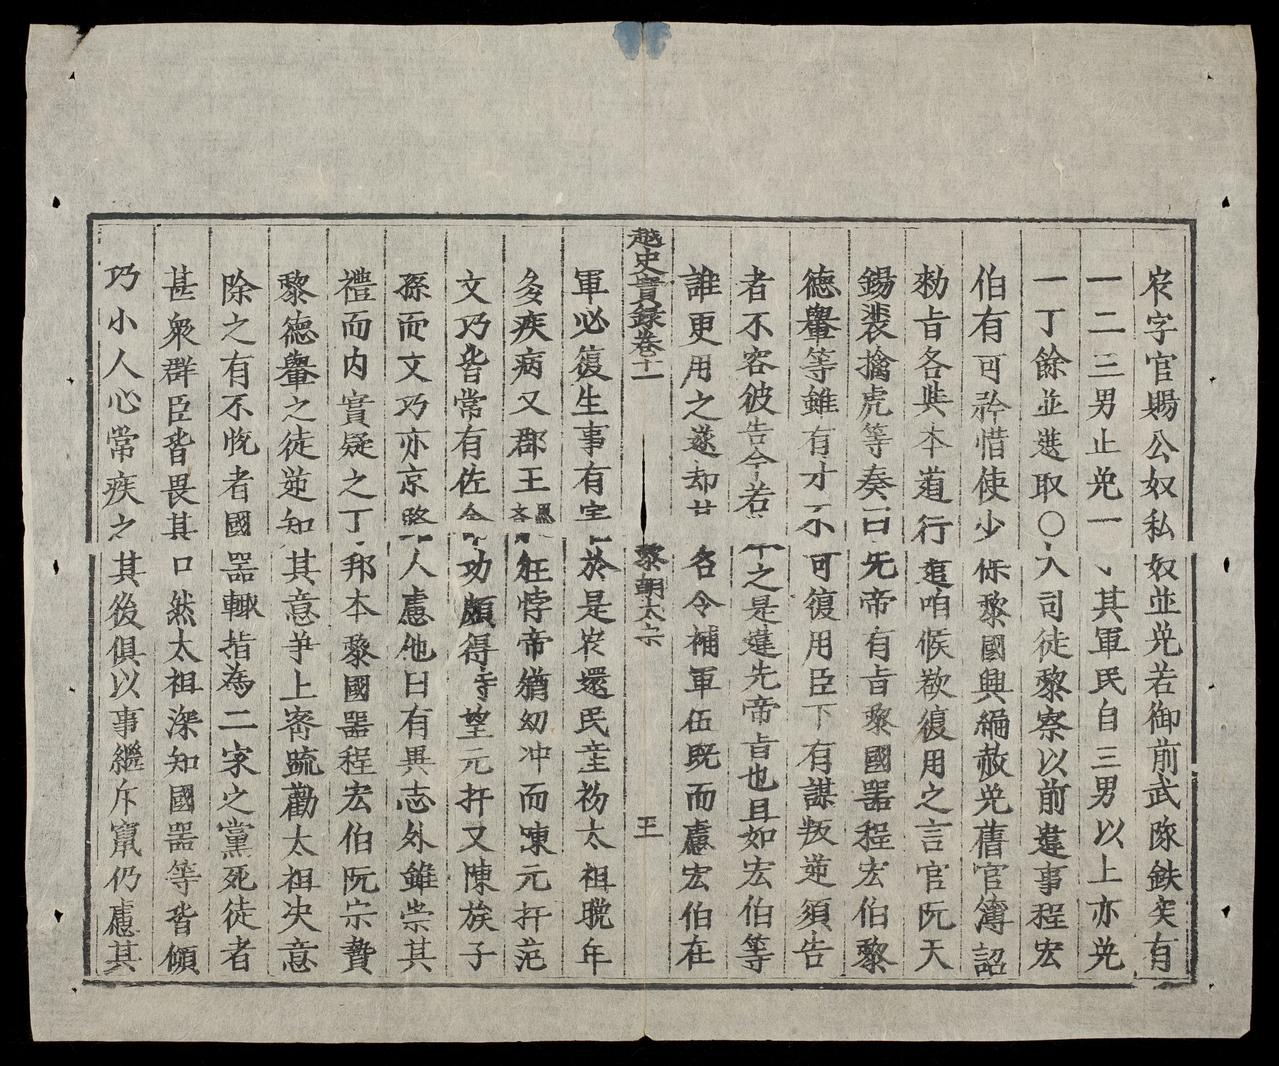 字官賜公奴私奴並免若御前武隊鉄突有
一二三男止免一其軍民自三男以上亦免
一丁餘並選取○司徒黎察以前違事程宏
伯有可矜惜使少黎國興編赦免舊官簿詔
勑旨各與本道行咱候欲復用之言官阮天
錫裴擒虎等奏曰先帝有旨黎國噐程宏伯黎
德轝等雖有才不可復用臣下有謀叛逆須告
者不容彼告今若之是違先帝旨也且如宏伯等
誰更用之遂却名令補軍伍既而慮宏伯在
越史實録卷十一
黎朝太宗
軍必復生事有於是還民初太祖晩年
多疾病又郡王狂悖帝猶幼冲而陳元扞范
文巧皆常有佐功頗得時望元扞又陳族子
孫而文巧亦京路人慮他日有異志外雖崇其
禮而内實疑之丁邦本黎國噐程宏伯阮宗贄
黎德轝之徒逆知其意爭上密疏勸太祖决意
除之有不悅者國噐輙指為二家之黨死徒者
甚衆群臣皆畏其口然太祖深知國噐等皆傾
巧小人心常疾之其後俱以事繼斥竄仍慮其